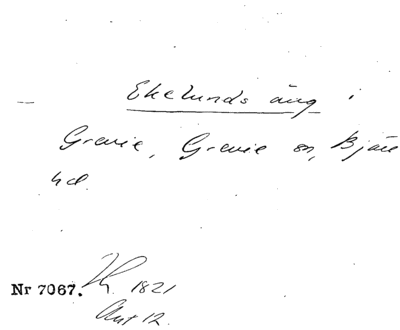 Ekelunds äng
Grevie, Grevie sn, Bjäre
hd.
Nr 7067. 1821
Akt 12.